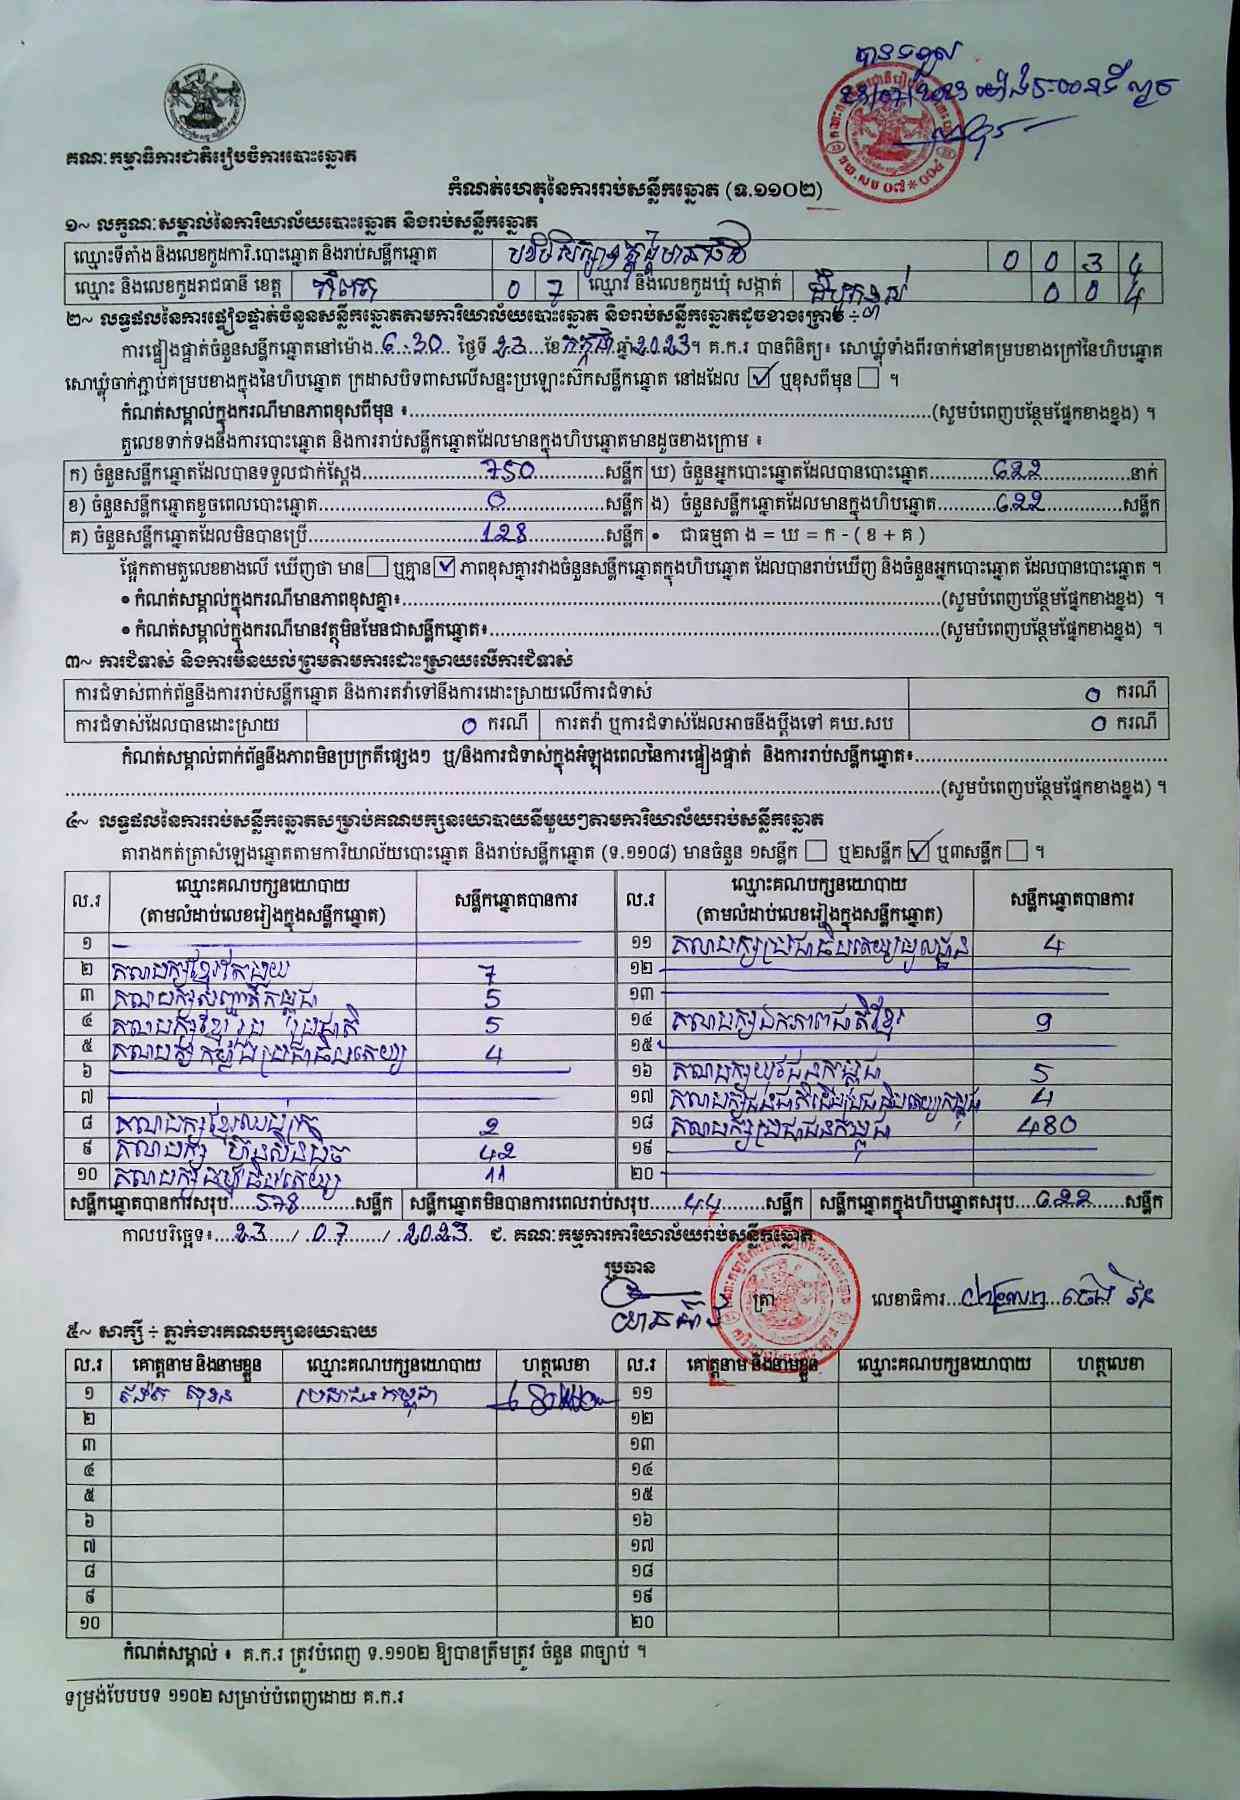 បានទទួល
23/07/2023
គណៈកម្មាធិការជាតិរៀបចំការបោះឆ្នោត
កំណត់ហេតុនៃការរាប់សន្លឹកឆ្នោត (ទ.១១០២)
១~ លក្ខណៈសម្គាល់នៃការិយាល័យបោះឆ្នោត និងរាប់សន្លឹកឆ្នោត
ឈ្មោះទីតាំង និងលេខកូដការិ.បោះឆ្នោត និងរាប់សន្លឹកឆ្នោត 0 0 3 4
ឈ្មោះ និងលេខកូដរាជធានី ខេត្ត កំពត 0 7 ឈ្មោះ និងលេខកូដឃុំ សង្កាត់ 0 0 4
២~ លទ្ធផលនៃការផ្ទៀងផ្ទាត់ចំនួនសន្លឹកឆ្នោតតាមការិយាល័យបោះឆ្នោត និងរាប់សន្លឹកឆ្នោតដូចខាងក្រោម ÷
ការផ្ទៀងផ្ទាត់ចំនួនសន្លឹកឆ្នោតនៅម៉ោង..6:30 ថ្ងៃទី 23 ខែកក្កដា ឆ្នាំ2023។ គ.ក.រ បានពិនិត្យ៖ សោឃ្លុំទាំងពីរចាក់នៅគម្របខាងក្រៅនៃហិបឆ្នោត
សោឃ្លុំចាក់ភ្ជាប់គម្របខាងក្នុងនៃហិបឆ្នោត ក្រដាសបិទពាសលើសន្ទះប្រឡោះស៊កសន្លឹកឆ្នោត នៅដដែល ☑ ឬខុសពីមុន ☐ ។
កំណត់សម្គាល់ក្នុងករណីមានភាពខុសពីមុន ៖..........(សូមបំពេញបន្ថែមផ្នែកខាងខ្នង) ។
តួលេខទាក់ទងនឹងការបោះឆ្នោត និងការរាប់សន្លឹកឆ្នោតដែលមានក្នុងហិបឆ្នោតមានដូចខាងក្រោម ៖
ក) ចំនួនសន្លឹកឆ្នោតដែលបានទទួលជាក់ស្តែង.....750.....សន្លឹក ឃ) ចំនួនអ្នកបោះឆ្នោតដែលបានបោះឆ្នោត.....622.....នាក់
ខ) ចំនួនសន្លឹកឆ្នោតខូចពេលបោះឆ្នោត.....0.....សន្លឹក ង) ចំនួនសន្លឹកឆ្នោតដែលមានក្នុងហិបឆ្នោត.....622.....សន្លឹក
គ) ចំនួនសន្លឹកឆ្នោតដែលមិនបានប្រើ.....128.....សន្លឹក • ជាធម្មតា ង = ឃ = ក - ( ខ + គ )
ផ្អែកតាមតួលេខខាងលើ ឃើញថា មាន ☐ ឬគ្មាន ☑ ភាពខុសគ្នារវាងចំនួនសន្លឹកឆ្នោតក្នុងហិបឆ្នោត ដែលបានរាប់ឃើញ និងចំនួនអ្នកបោះឆ្នោត ដែលបានបោះឆ្នោត ។
• កំណត់សម្គាល់ក្នុងករណីមានភាពខុសគ្នា៖..........(សូមបំពេញបន្ថែមផ្នែកខាងខ្នង) ។
• កំណត់សម្គាល់ក្នុងករណីមានវត្ថុមិនមែនជាសន្លឹកឆ្នោត៖..........(សូមបំពេញបន្ថែមផ្នែកខាងខ្នង) ។
៣~ ការជំទាស់ និងការមិនយល់ព្រមតាមការដោះស្រាយលើការជំទាស់
ការជំទាស់ពាក់ព័ន្ធនឹងការរាប់សន្លឹកឆ្នោត និងការតវ៉ាទៅនឹងការដោះស្រាយលើការជំទាស់ 0 ករណី
ការជំទាស់ដែលបានដោះស្រាយ 0 ករណី ការតវ៉ា ឬការជំទាស់ដែលអាចនឹងប្តឹងទៅ គឃ.សប 0 ករណី
កំណត់សម្គាល់ពាក់ព័ន្ធនឹងភាពមិនប្រក្រតីផ្សេងៗ ឬ/និងការជំទាស់ក្នុងអំឡុងពេលនៃការផ្ទៀងផ្ទាត់ និងការរាប់សន្លឹកឆ្នោត៖..........
..........(សូមបំពេញបន្ថែមផ្នែកខាងខ្នង) ។
៤~ លទ្ធផលនៃការរាប់សន្លឹកឆ្នោតសម្រាប់គណបក្សនយោបាយនីមួយៗតាមការិយាល័យរាប់សន្លឹកឆ្នោត
តារាងកត់ត្រាសំឡេងឆ្នោតតាមការិយាល័យបោះឆ្នោត និងរាប់សន្លឹកឆ្នោត (ទ.១១០៨) មានចំនួន ១សន្លឹក ☐ ឬ២សន្លឹក ☑ ឬ៣សន្លឹក ☐ ។
ល.រ ឈ្មោះគណបក្សនយោបាយ (តាមលំដាប់លេខរៀងក្នុងសន្លឹកឆ្នោត) សន្លឹកឆ្នោតបានការ ល.រ ឈ្មោះគណបក្សនយោបាយ (តាមលំដាប់លេខរៀងក្នុងសន្លឹកឆ្នោត) សន្លឹកឆ្នោតបានការ
១ ១១ គណបក្សប្រជាធិបតេយ្យមូលដ្ឋាន 4
២ គណបក្សខ្មែរវិវឌ្ឍ 7 ១២
៣ គណបក្សសញ្ជាតិកម្ពុជា 5 ១៣
៤ គណបក្សខ្មែររួបរួមជាតិ 5 ១៤ គណបក្សឯកភាពជាតិខ្មែរ 9
៥ គណបក្សកម្លាំងប្រជាធិបតេយ្យ 4 ១៥
៦ ១៦ គណបក្សយុវជនកម្ពុជា 5
៧ ១៧ 4
៨ គណបក្សខ្មែរឈប់ក្រ 2 ១៨ គណបក្សប្រជាជនកម្ពុជា 480
៩ គណបក្ស ហ៊្វុនស៊ិនប៉ិច 42 ១៩
១០ គណបក្សធម្មាធិបតេយ្យ 11 ២០
សន្លឹកឆ្នោតបានការសរុប.....578.....សន្លឹក សន្លឹកឆ្នោតមិនបានការពេលរាប់សរុប.....44.....សន្លឹក សន្លឹកឆ្នោតក្នុងហិបឆ្នោតសរុប.....622.....សន្លឹក
កាលបរិច្ឆេទ៖...23.../.07.../.2023. ជ. គណៈកម្មការការិយាល័យរាប់សន្លឹកឆ្នោត
ប្រធាន
ត្រា លេខាធិការ
៥~ សាក្សី ÷ ភ្នាក់ងារគណបក្សនយោបាយ
ល.រ គោត្តនាម និងនាមខ្លួន ឈ្មោះគណបក្សនយោបាយ ហត្ថលេខា ល.រ គោត្តនាម និងនាមខ្លួន ឈ្មោះគណបក្សនយោបាយ ហត្ថលេខា
១ ប្រជាជនកម្ពុជា ១១
២ ១២
៣ ១៣
៤ ១៤
៥ ១៥
៦ ១៦
៧ ១៧
៨ ១៨
៩ ១៩
១០ ២០
កំណត់សម្គាល់ ៖ គ.ក.រ ត្រូវបំពេញ ទ.១១០២ ឱ្យបានត្រឹមត្រូវ ចំនួន ៣ច្បាប់ ។
ទម្រង់បែបបទ ១១០២ សម្រាប់បំពេញដោយ គ.ក.រ